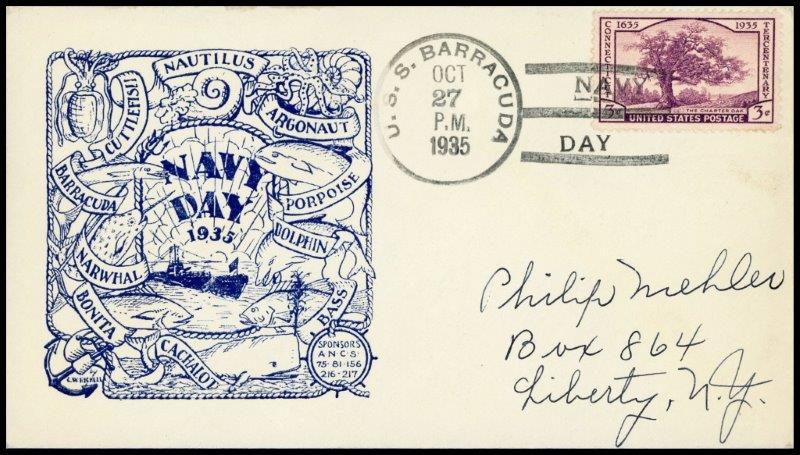 NAUTILUS
CUTTLEFISH
ARGONAUT
BARRACUDA
NAVY
DAY
1935
PORPOISE
DOLPHIN
NARWHAL
BONITA
BASS
CACHALOT
SPONSORS
A.N.C.S.
75-81-156
216-217
U.S.S. BARRACUDA
OCT
27
P.M.
1935
NAVY
DAY
1635 1935
CONNECTICUT TERCENTENARY
THE CHARTER OAK
3¢ 3¢
UNITED STATES POSTAGE
Philip Mehler
Box 864
Liberty, N.Y.